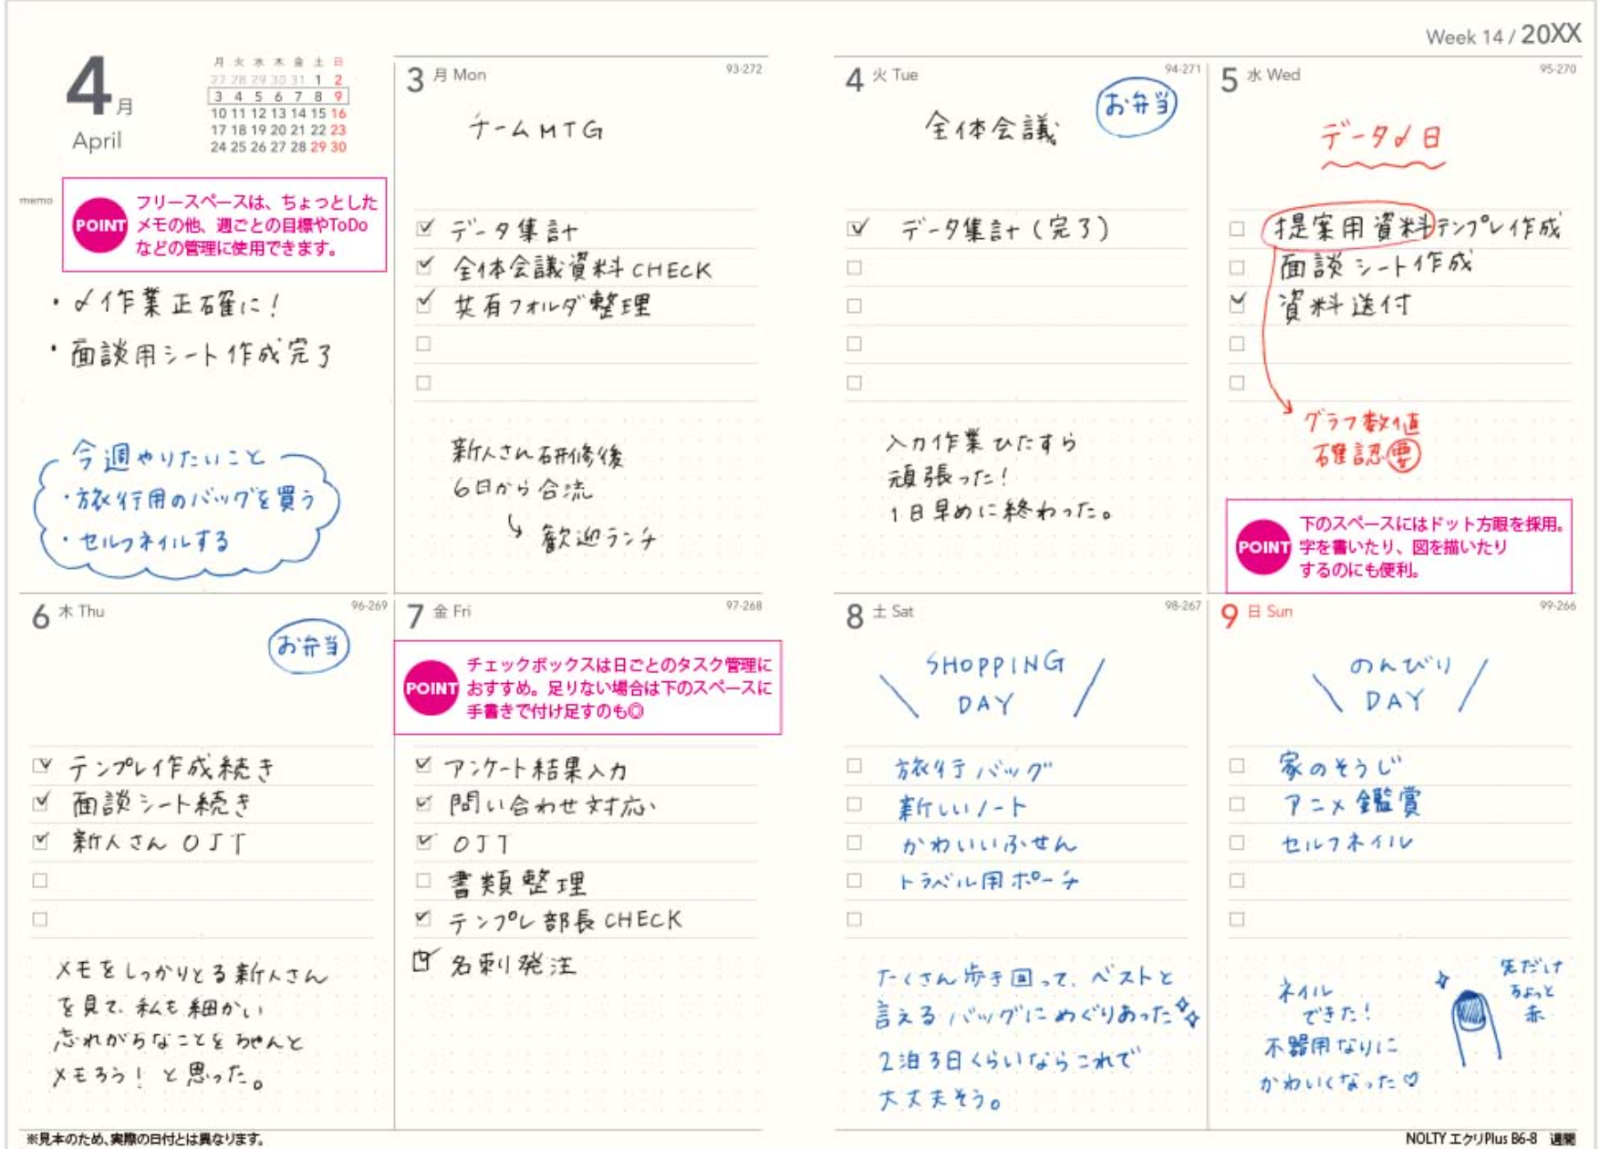 Week 14 / 20XX
4月
April
月 火 水 木 金 土 日
27 28 29 30 31 1 2
3 4 5 6 7 8 9
10 11 12 13 14 15 16
17 18 19 20 21 22 23
24 25 26 27 28 29 30
memo
POINT
フリースペースは、ちょっとした
メモの他、週ごとの目標やToDo
などの管理に使用できます。
・〆作業正確に!
・面談用シート作成完了
今週やりたいこと
・旅行用のバッグを買う
・セルフネイルする
3 月 Mon
93-272
チームMTG
データ集計
全体会議資料CHECK
共有フォルダ整理
新人さん研修後
6日から合流
歓迎ランチ
4 火 Tue
94-271
お弁当
全体会議
データ集計(完了)
入力作業ひたすら
頑張った!
1日早めに終わった。
5 水 Wed
95-270
データ〆日
提案用資料テンプレ作成
面談シート作成
資料送付
グラフ数値
確認要
POINT
下のスペースにはドット方眼を採用。
字を書いたり、図を描いたり
するのにも便利。
6 木 Thu
96-269
お弁当
テンプレ作成続き
面談シート続き
新人さんOJT
メモをしっかりとる新人さん
を見て、私も細かい
忘れがちなことをちゃんと
メモろう!と思った。
7 金 Fri
97-268
POINT
チェックボックスは日ごとのタスク管理に
おすすめ。足りない場合は下のスペースに
手書きで付け足すのも◎
アンケート結果入力
問い合わせ対応
OJT
書類整理
テンプレ部長CHECK
名刺発注
8 土 Sat
98-267
SHOPPING
DAY
旅行バッグ
新しいノート
かわいいふせん
トラベル用ポーチ
たくさん歩き回って、ベストと
言えるバッグにめぐりあった
2泊3日くらいならこれで
大丈夫そう。
9 日 Sun
99-266
のんびり
DAY
家のそうじ
アニメ鑑賞
セルフネイル
ネイル
できた!
不器用なりに
かわいくなった♡
先だけ
ちょっと
赤
※見本のため、実際の日付とは異なります。
NOLTY エクリPlus B6-8 週間